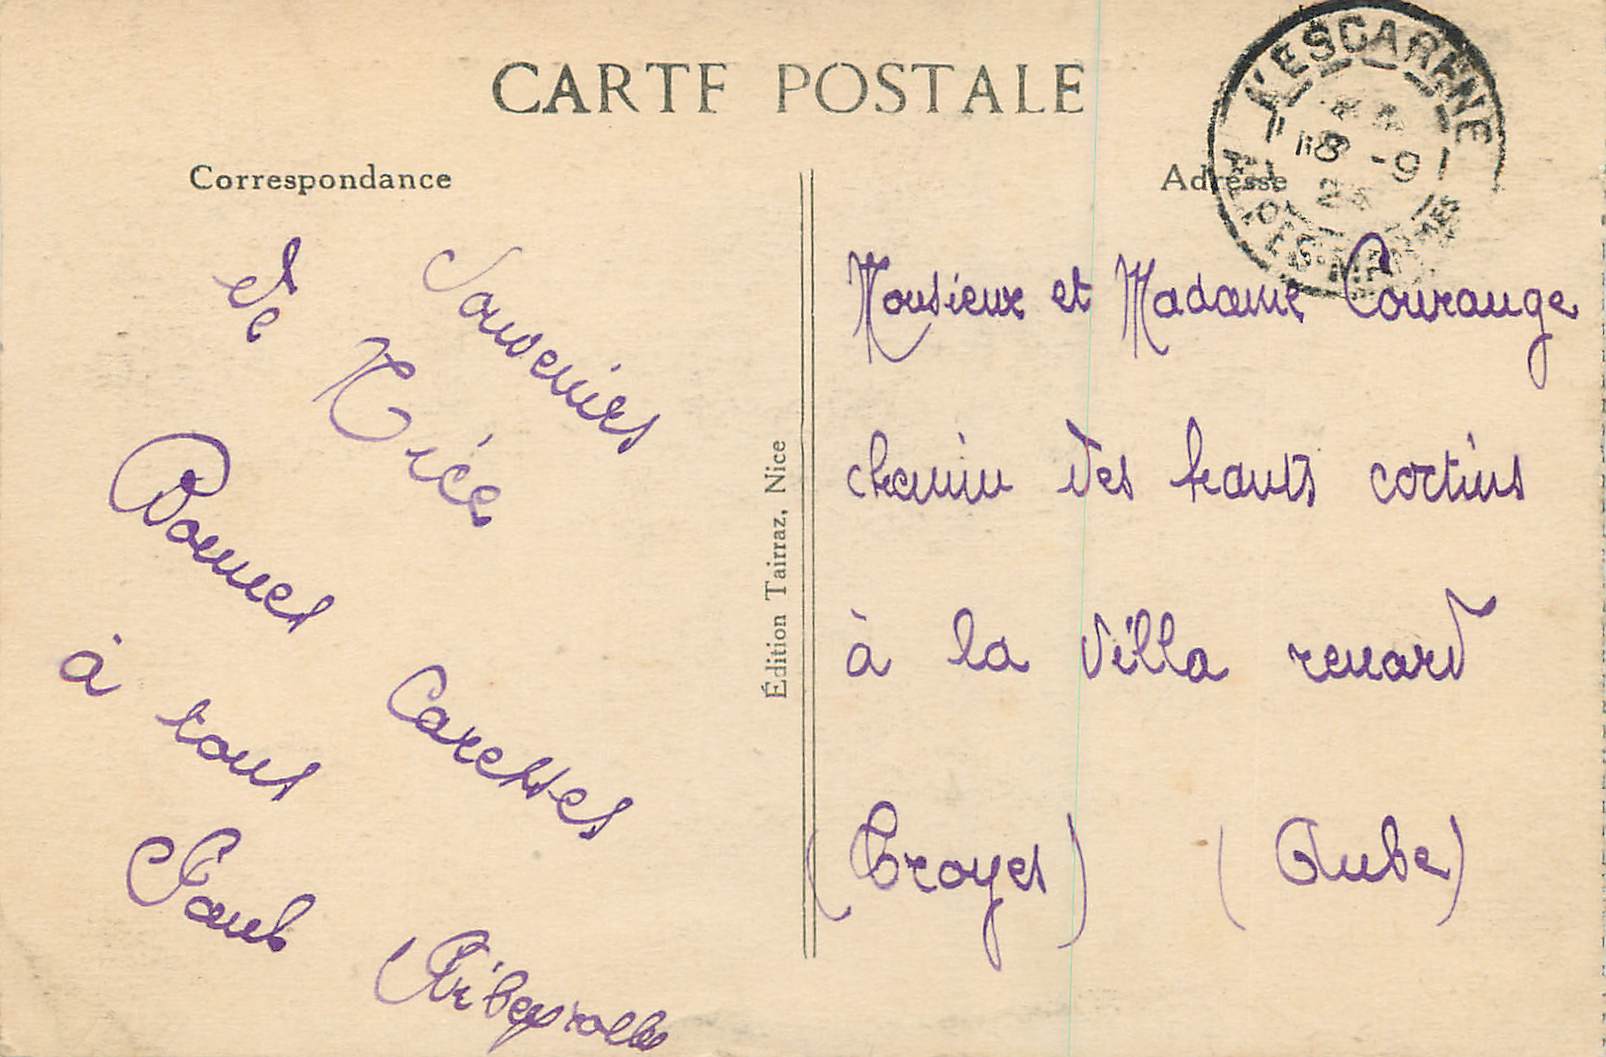 CARTE POSTALE
Correspondance
Adresse
L'ESCARENE
18 -9
ALPES-MMES
Souvenirs
de Nice
Bonnes Caresses
à tous
Paul Ribeyrolle
Édition Tairraz, Nice
Monsieur et Madame Courange
chemin des hauts cortins
à la villa renard
(Troyes) (Aube)